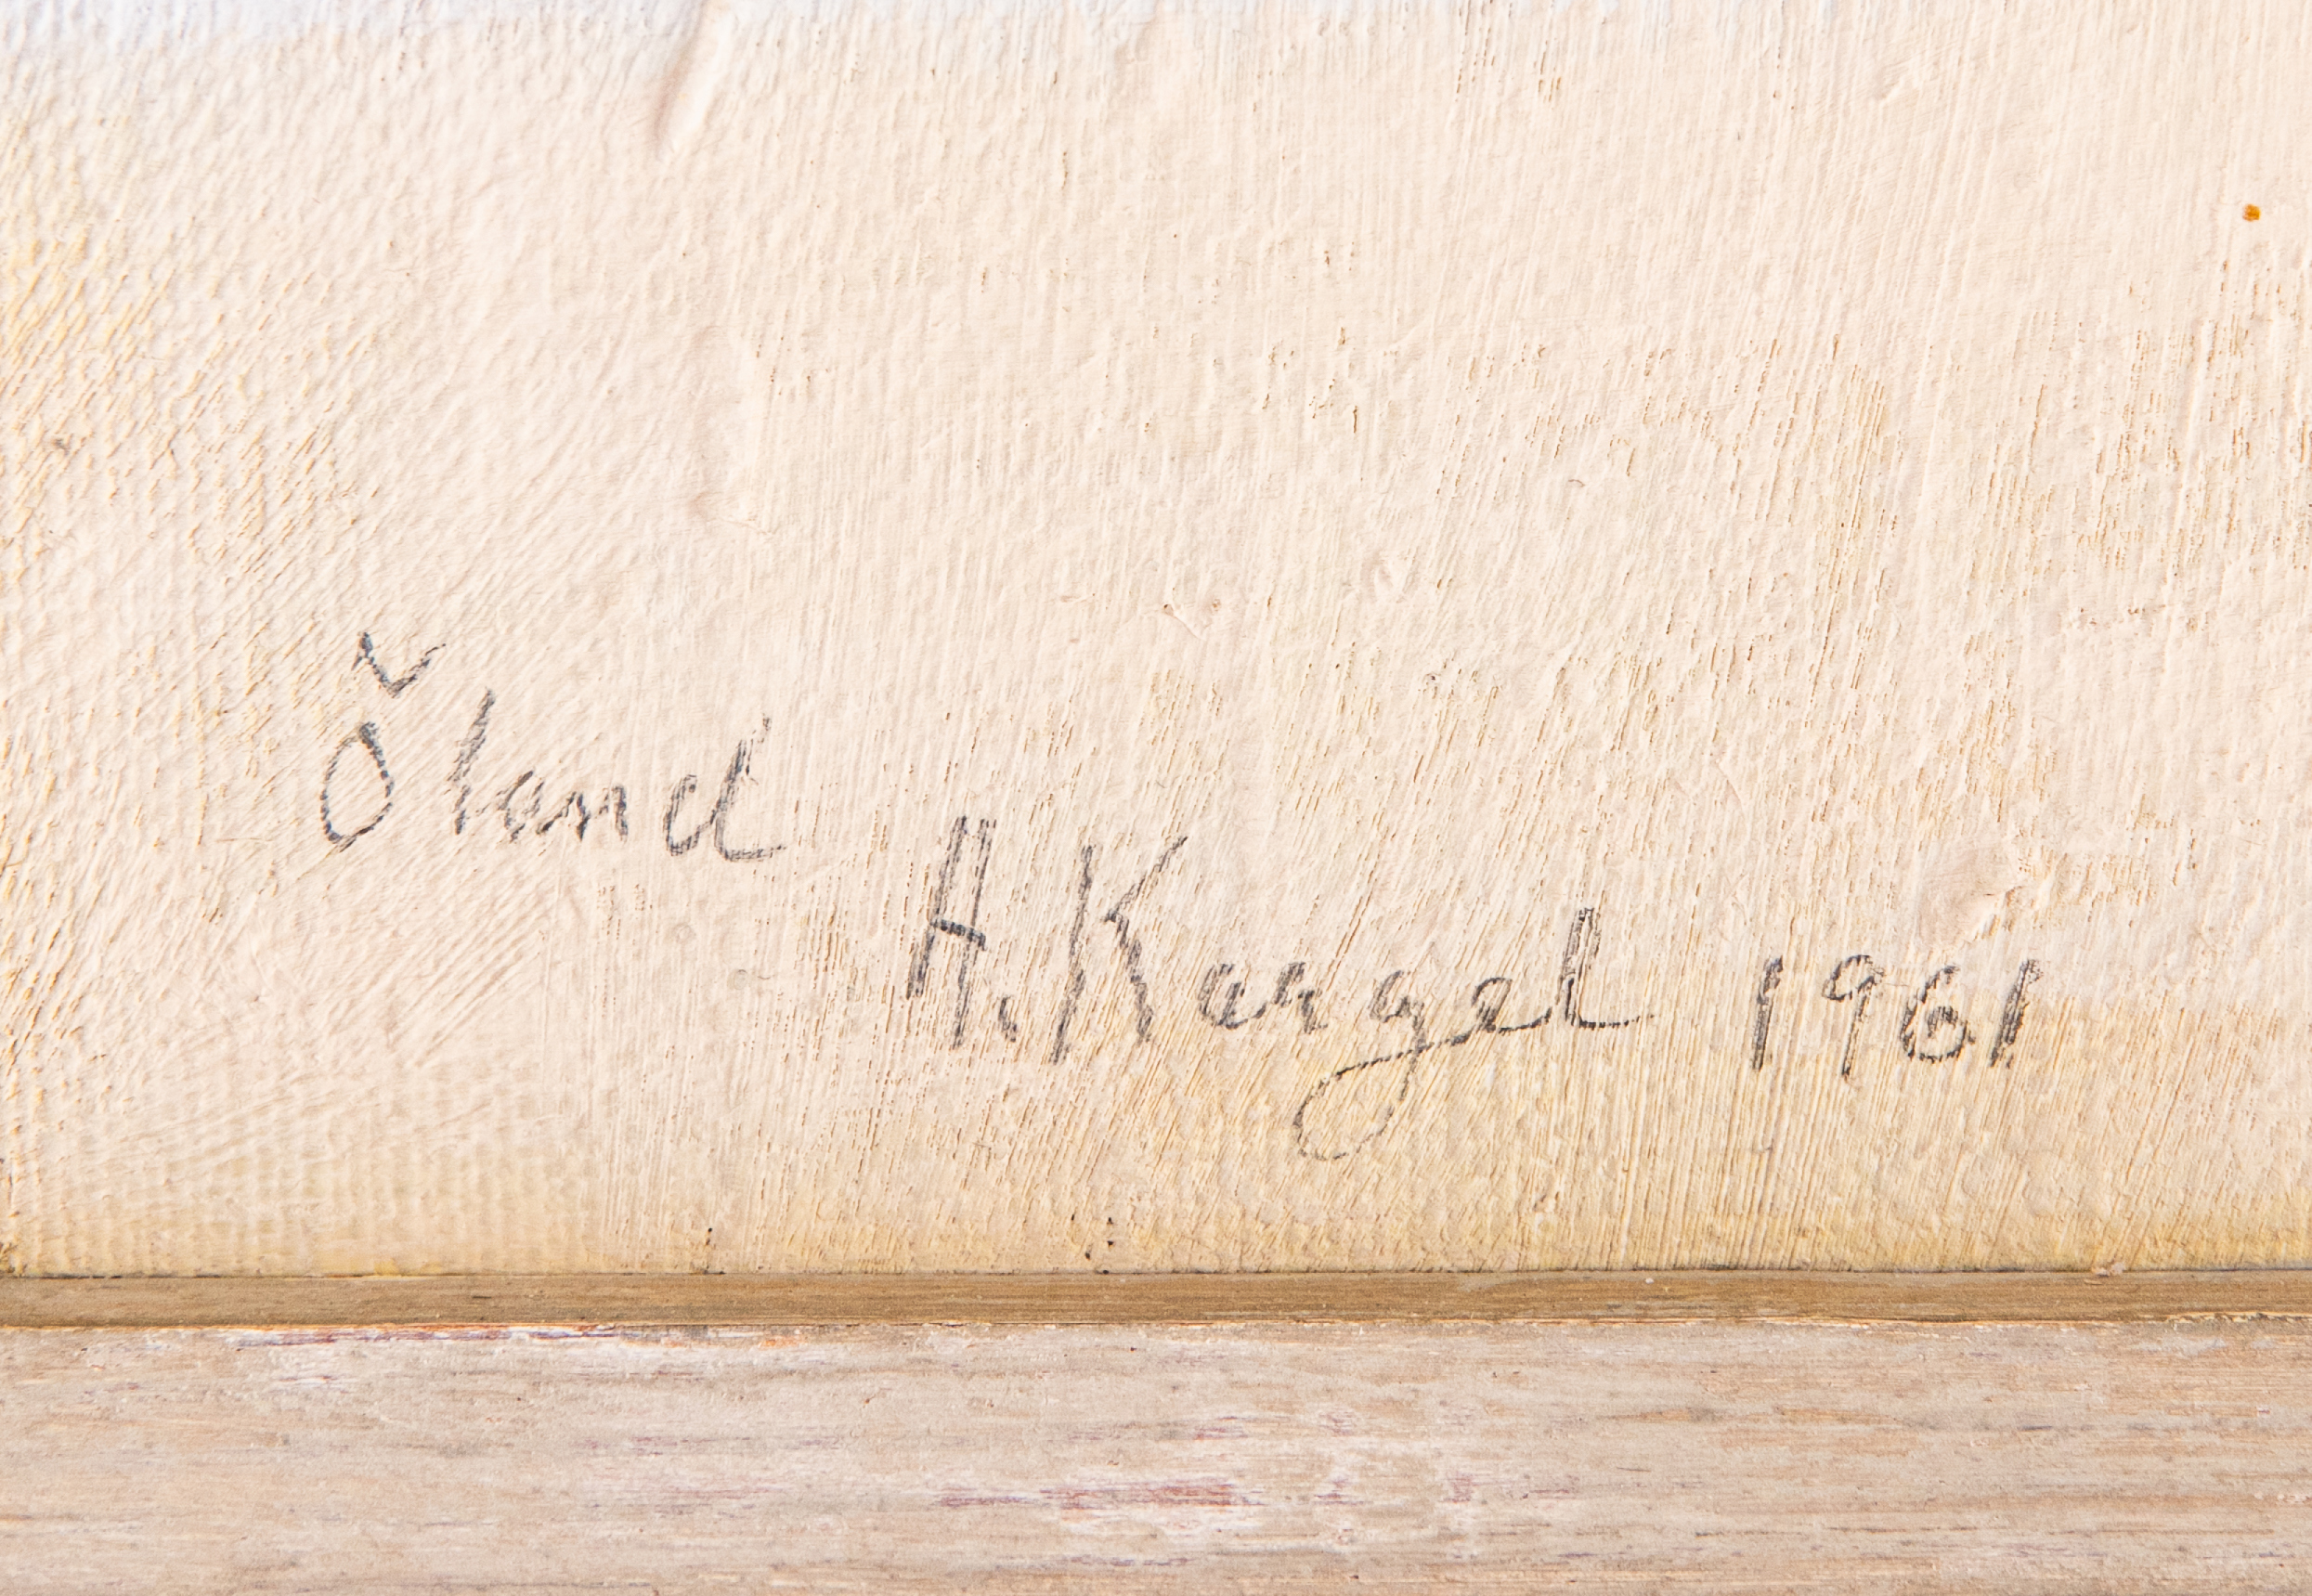 Öland
H. Kargel 1961